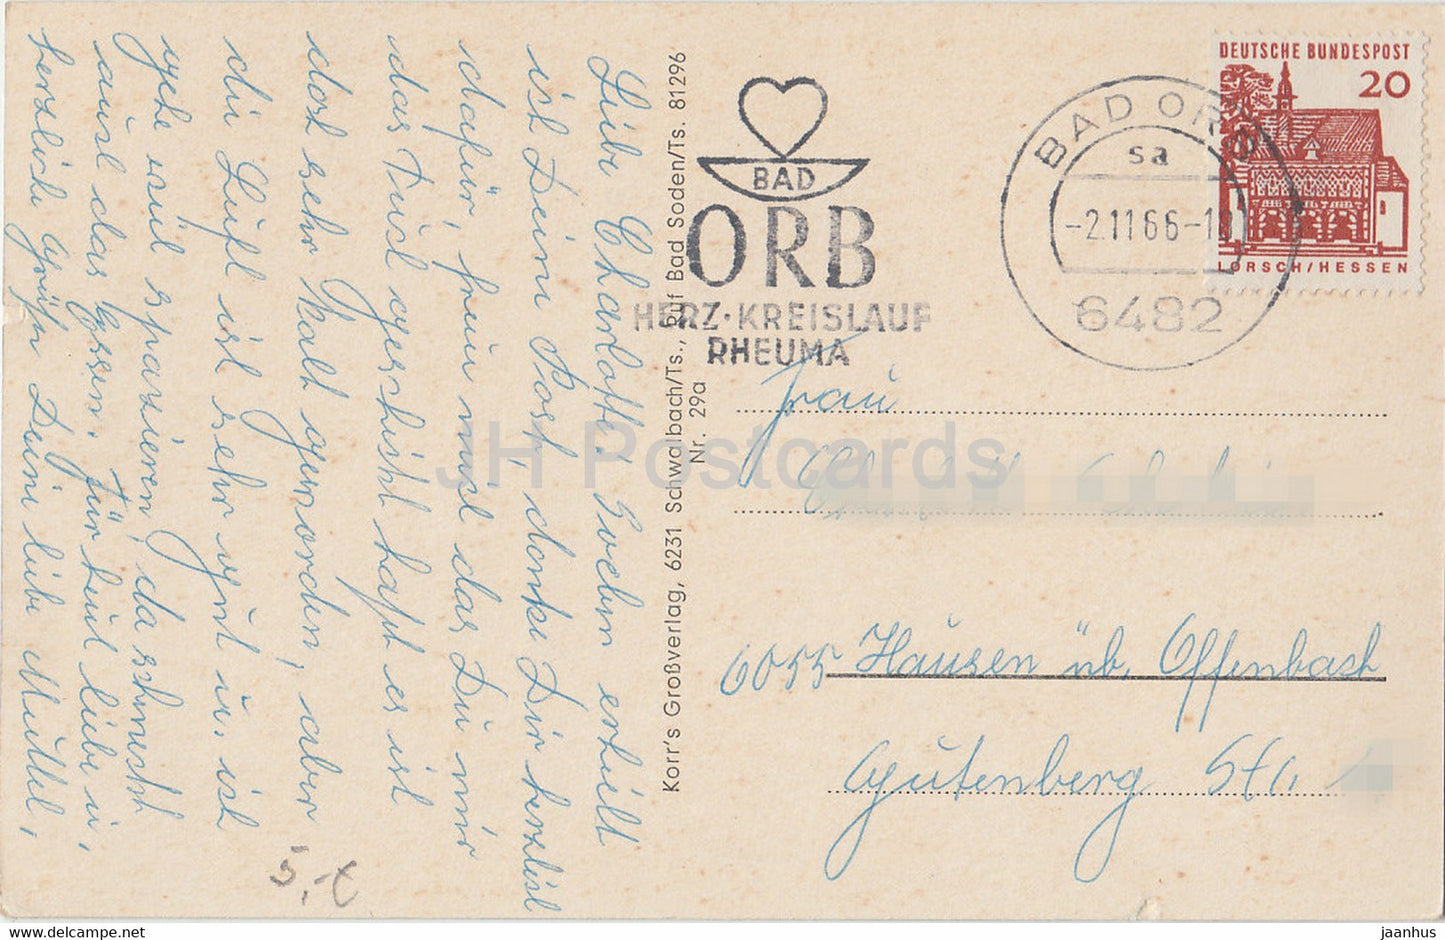 Liebe Charlotte! Soeben erhielt
ich Deine Post, danke Dir herzlich
dafür, freue mich das Du mir
das Tuch geschickt hast es ist
dort sehr Kalt geworden, aber
die Luft ist sehr gut u. ich
gehe viel spazieren, da schmeckt
auch das Essen. Für heut liebe u,
herzliche Grüße Deine liebe Mutter,
5,-€
Korr's Großverlag, 6231 Schwalbach/Ts., Ruf Bad Soden/Ts. 81296
Nr. 29a
BAD
ORB
HERZ·KREISLAUF
RHEUMA
BAD ORB
sa
-2.11.66-
6482
DEUTSCHE BUNDESPOST
20
LORSCH/HESSEN
Frau
6055 Hausen üb. Offenbach
Gutenberg Str.
JH Postcards
delcampe.net
jaanhus